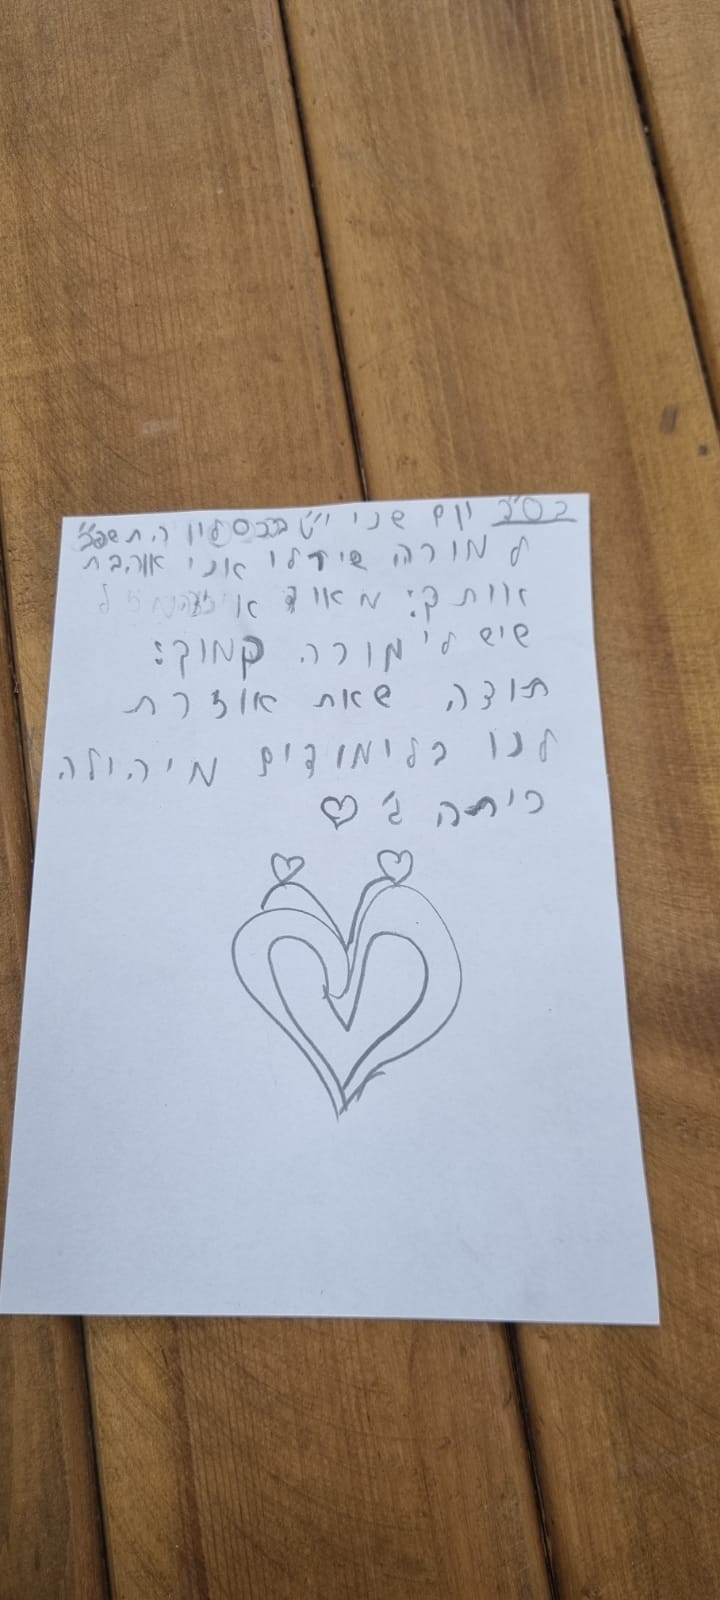 בס"ד יום שני י"ט בכסליו ה.תשפ"ב
למורה שירלי אני אוהבת
אותך: מאוד איזה
שיש לי מורה כמוך:
תודה שאת אוזרת
לנו בלימודים מיהולה
כיתה ג' ♡